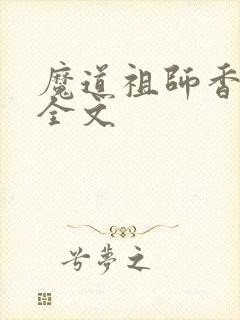 魔道祖師香
全文
兮夢之